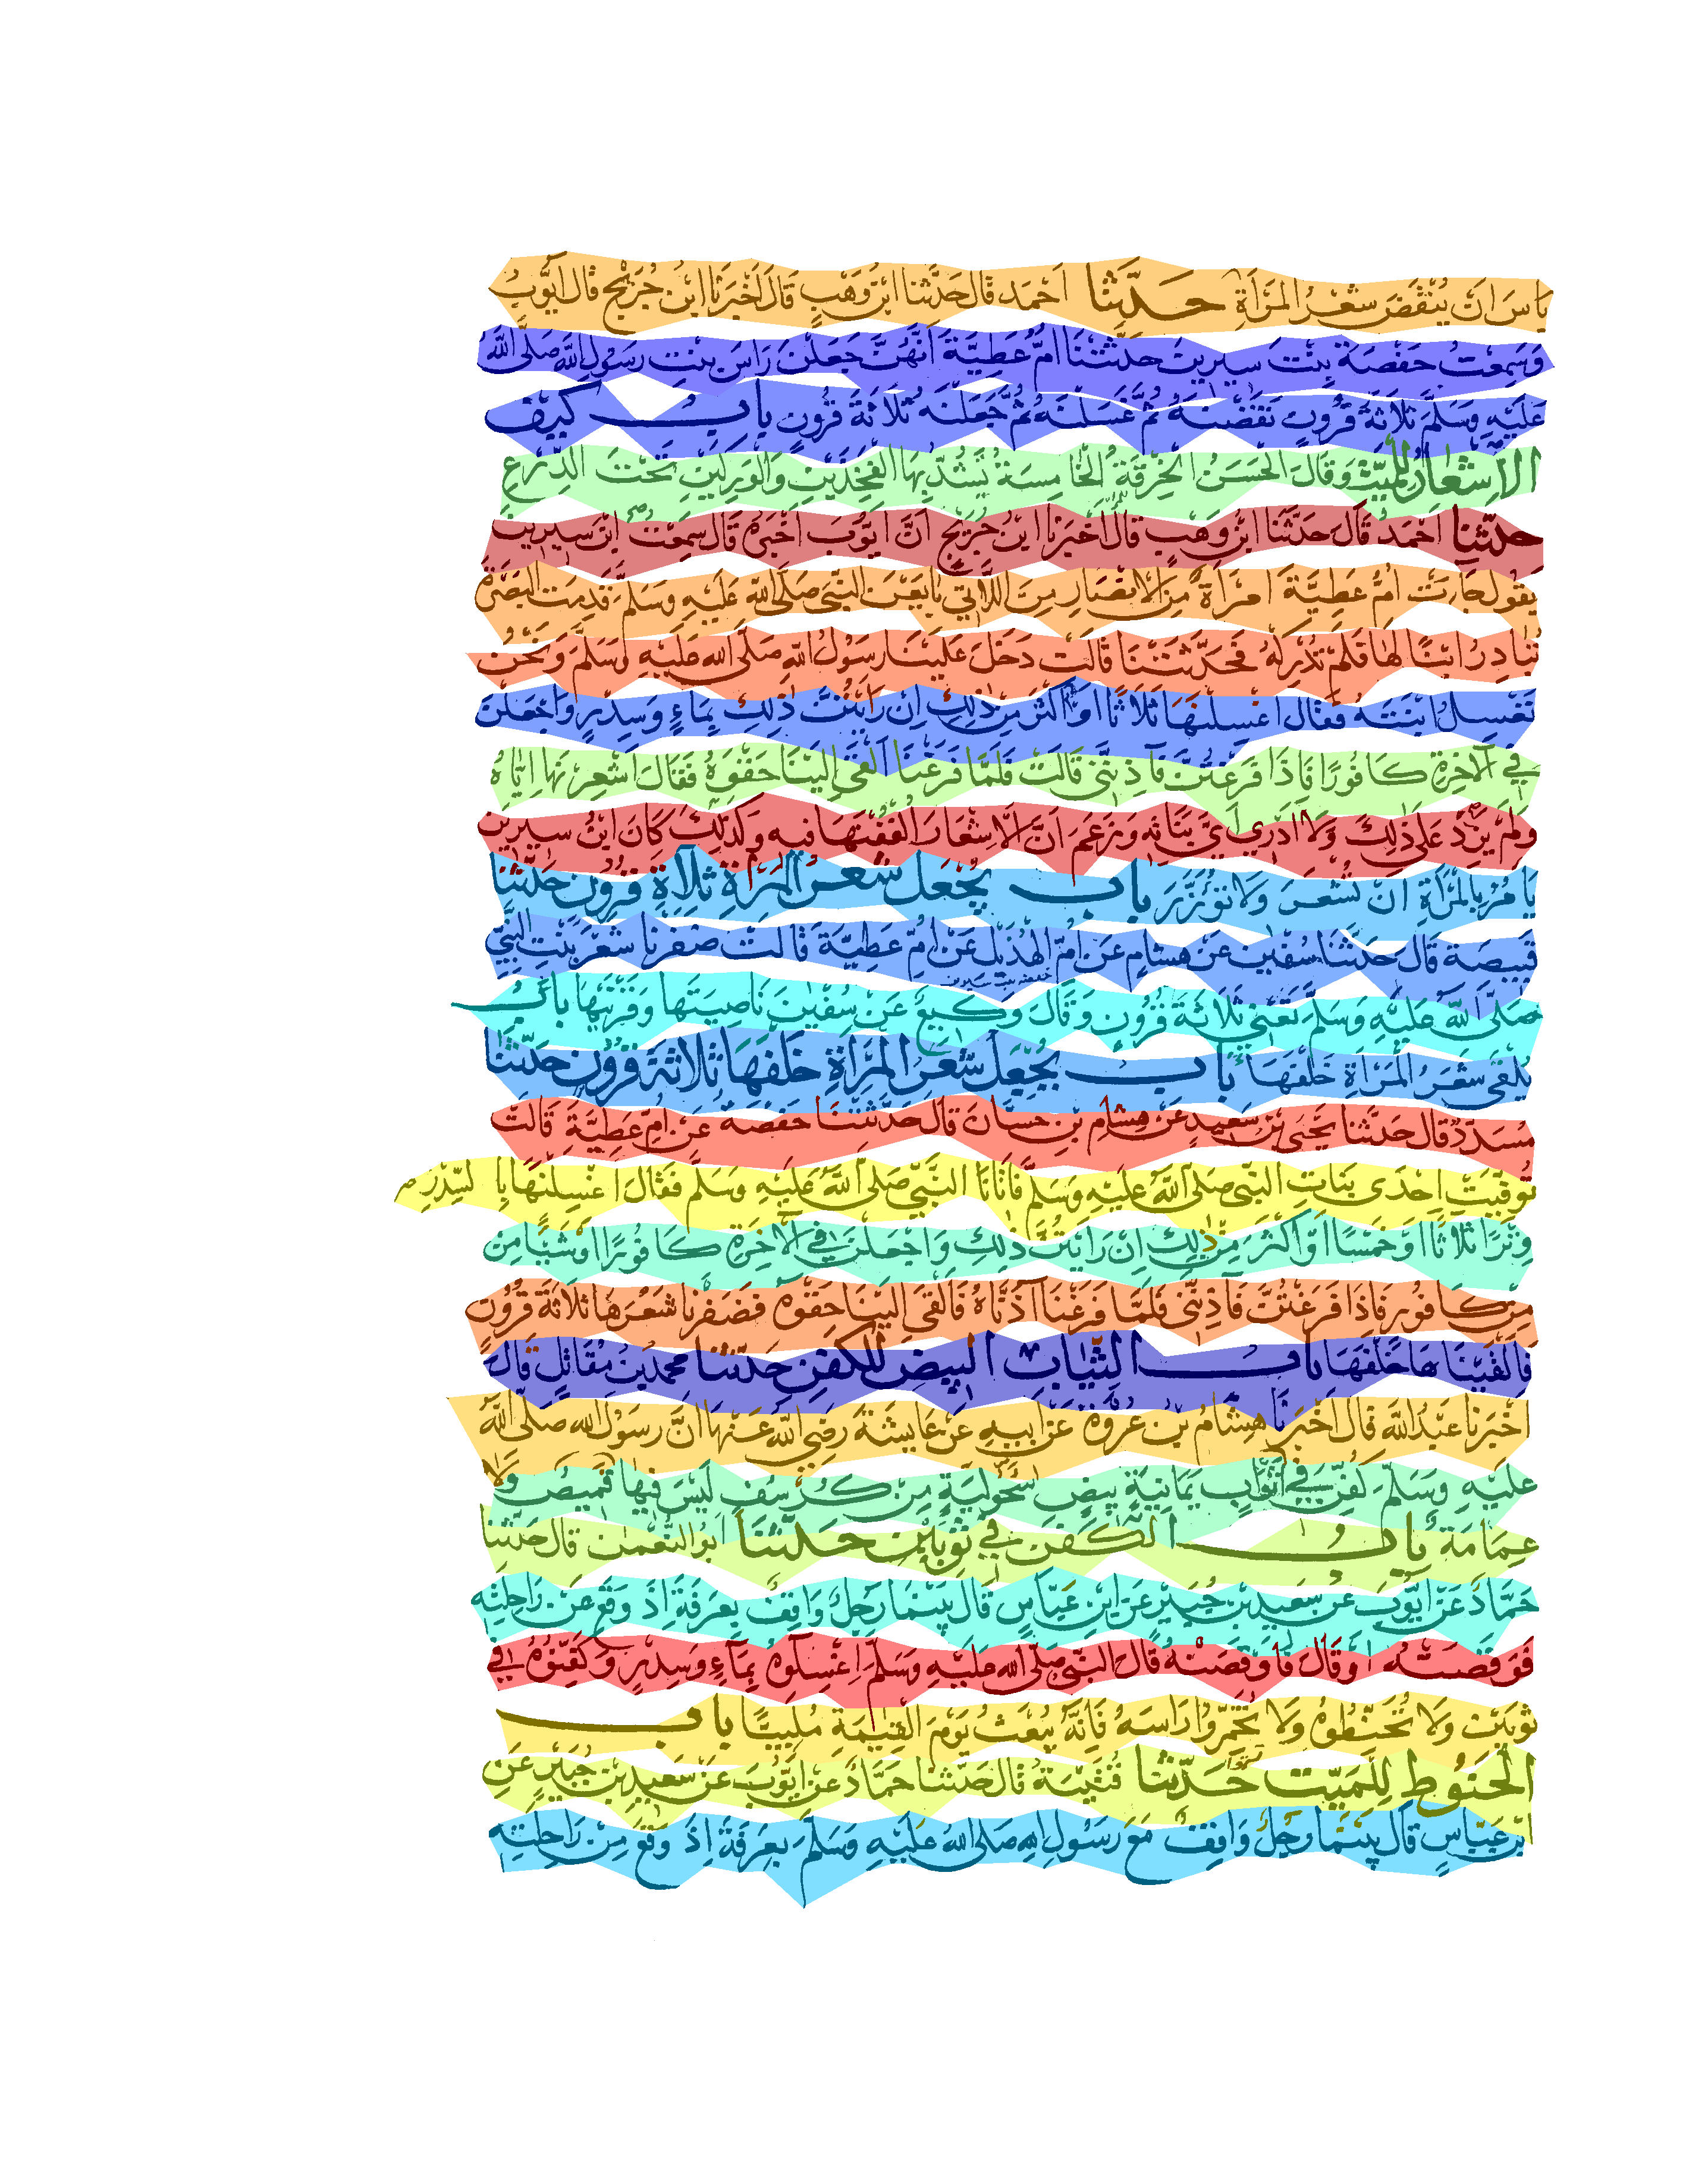 بأس ان يُنقض شعر المرأة حدثنا احمد قال حدثنا ابن وهب قال اخبرنا ابن جريج قال ايوب
وسمعت حفصة بنت سيرين حدثتنا ام عطية انهن جعلن راس بنت رسول الله صلى الله
عليه وسلم ثلاثة قرون نقضنه ثم غسلنه ثم جعلنه ثلاثة قرون باب كيف
الاشعار للميت وقال الحسن الخرقة الخامسة يشد بها الفخذين والوركين تحت الدرع
حدثنا احمد قال حدثنا ابن وهب قال اخبرنا ابن جريج ان ايوب اخبره قال سمعت ابن سيرين
يقول جاءت ام عطية امرأة من الانصار من اللاتي بايعن النبي صلى الله عليه وسلم قدمت البصرة
تبادر ابنا لها فلم تدركه فحدثتنا قالت دخل علينا رسول الله صلى الله عليه وسلم ونحن
نغسل ابنته فقال اغسلنها ثلاثا او اكثر من ذلك ان رايتن ذلك بماء وسدر واجعلن
في الآخرة كافورا فاذا فرغتن فآذنني قالت فلما فرغنا القى الينا حقوه فقال اشعرنها اياه
ولم يزد على ذلك ولا ادري اي بناته وزعم ان الاشعار الففنها فيه وكذلك كان ابن سيرين
يامر بالمرأة ان تشعر ولا تؤزر باب يجعل شعر المرأة ثلاثة قرون حدثنا
قبيصة قال حدثنا سفين عن هشام عن ام الهذيل عن ام عطية قالت ضفرنا شعر بنت النبي
حفصة بنت سيرين
صلى الله عليه وسلم تعني ثلاثة قرون وقال وكيع عن سفين ناصيتها وقرنيها باب
يلقى شعر المرأة خلفها باب يجعل شعر المرأة خلفها ثلاثة قرون حدثنا
مسدد قال حدثنا يحيى بن سعيد عن هشام بن حسان قال حدثتنا حفصة عن ام عطية قالت
توفيت احدى بنات النبي صلى الله عليه وسلم فاتانا النبي صلى الله عليه وسلم فقال اغسلنها بالسدر
وترا ثلاثا او خمسا او اكثر من ذلك ان رايتن ذلك واجعلن في الآخرة كافورا او شيئا من
من كافور فاذا فرغتن فآذنني فلما فرغنا آذناه فالقى الينا حقوه فضفرنا شعرها ثلاثة قرون
فالقيناها خلفها باب الثياب البيض للكفن حدثنا محمد بن مقاتل قال
اخبرنا عبد الله قال اخبرنا هشام بن عروة عن ابيه عن عايشة رضي الله عنها ان رسول الله صلى الله
عليه وسلم كفن في اثواب يمانية بيض سحولية من كرسف ليس فيها قميص ولا
عمامة باب الكفن في ثوبين حدثنا ابو النعمن قال حدثنا
حماد عن ايوب عن سعيد بن جبير عن ابن عباس قال بينما رجل واقف بعرفة اذ وقع عن راحلته
فوقصته او قال فاوقصته قال النبي صلى الله عليه وسلم اغسلوه بماء وسدر وكفنوه في
ثوبين ولا تحنطوه ولا تخمروا راسه فانه يبعث يوم القيمة ملبيا باب
الحنوط للميت حدثنا قتيبة قال حدثنا حماد عن ايوب عن سعيد بن جبير عن
ابن عباس قال بينما رجل واقف مع رسول الله صلى الله عليه وسلم بعرفة اذ وقع من راحلته